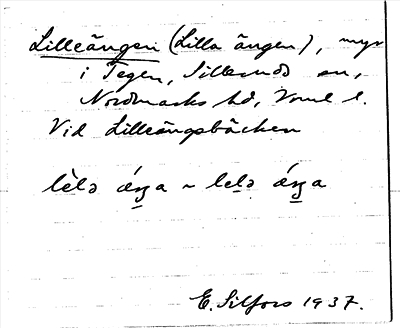 Lilleängen (Lilla ängen), myr
i Tegen, Sillerud sn,
Nordmarks hd, Vrml l.
Vid Lilleängsbäcken
lèlə ǽŋa ~ lelə ǽŋa
E. Silfors 1937.